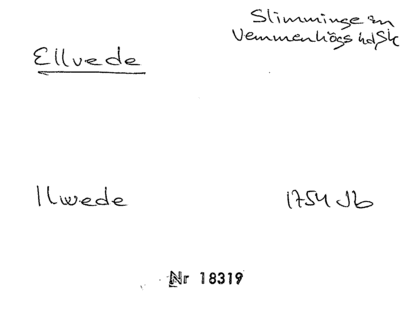 Slimminge sn
Vemmenhögs hd Sk
Ellvede
Ilwede 1754 Jb
Nr 18319